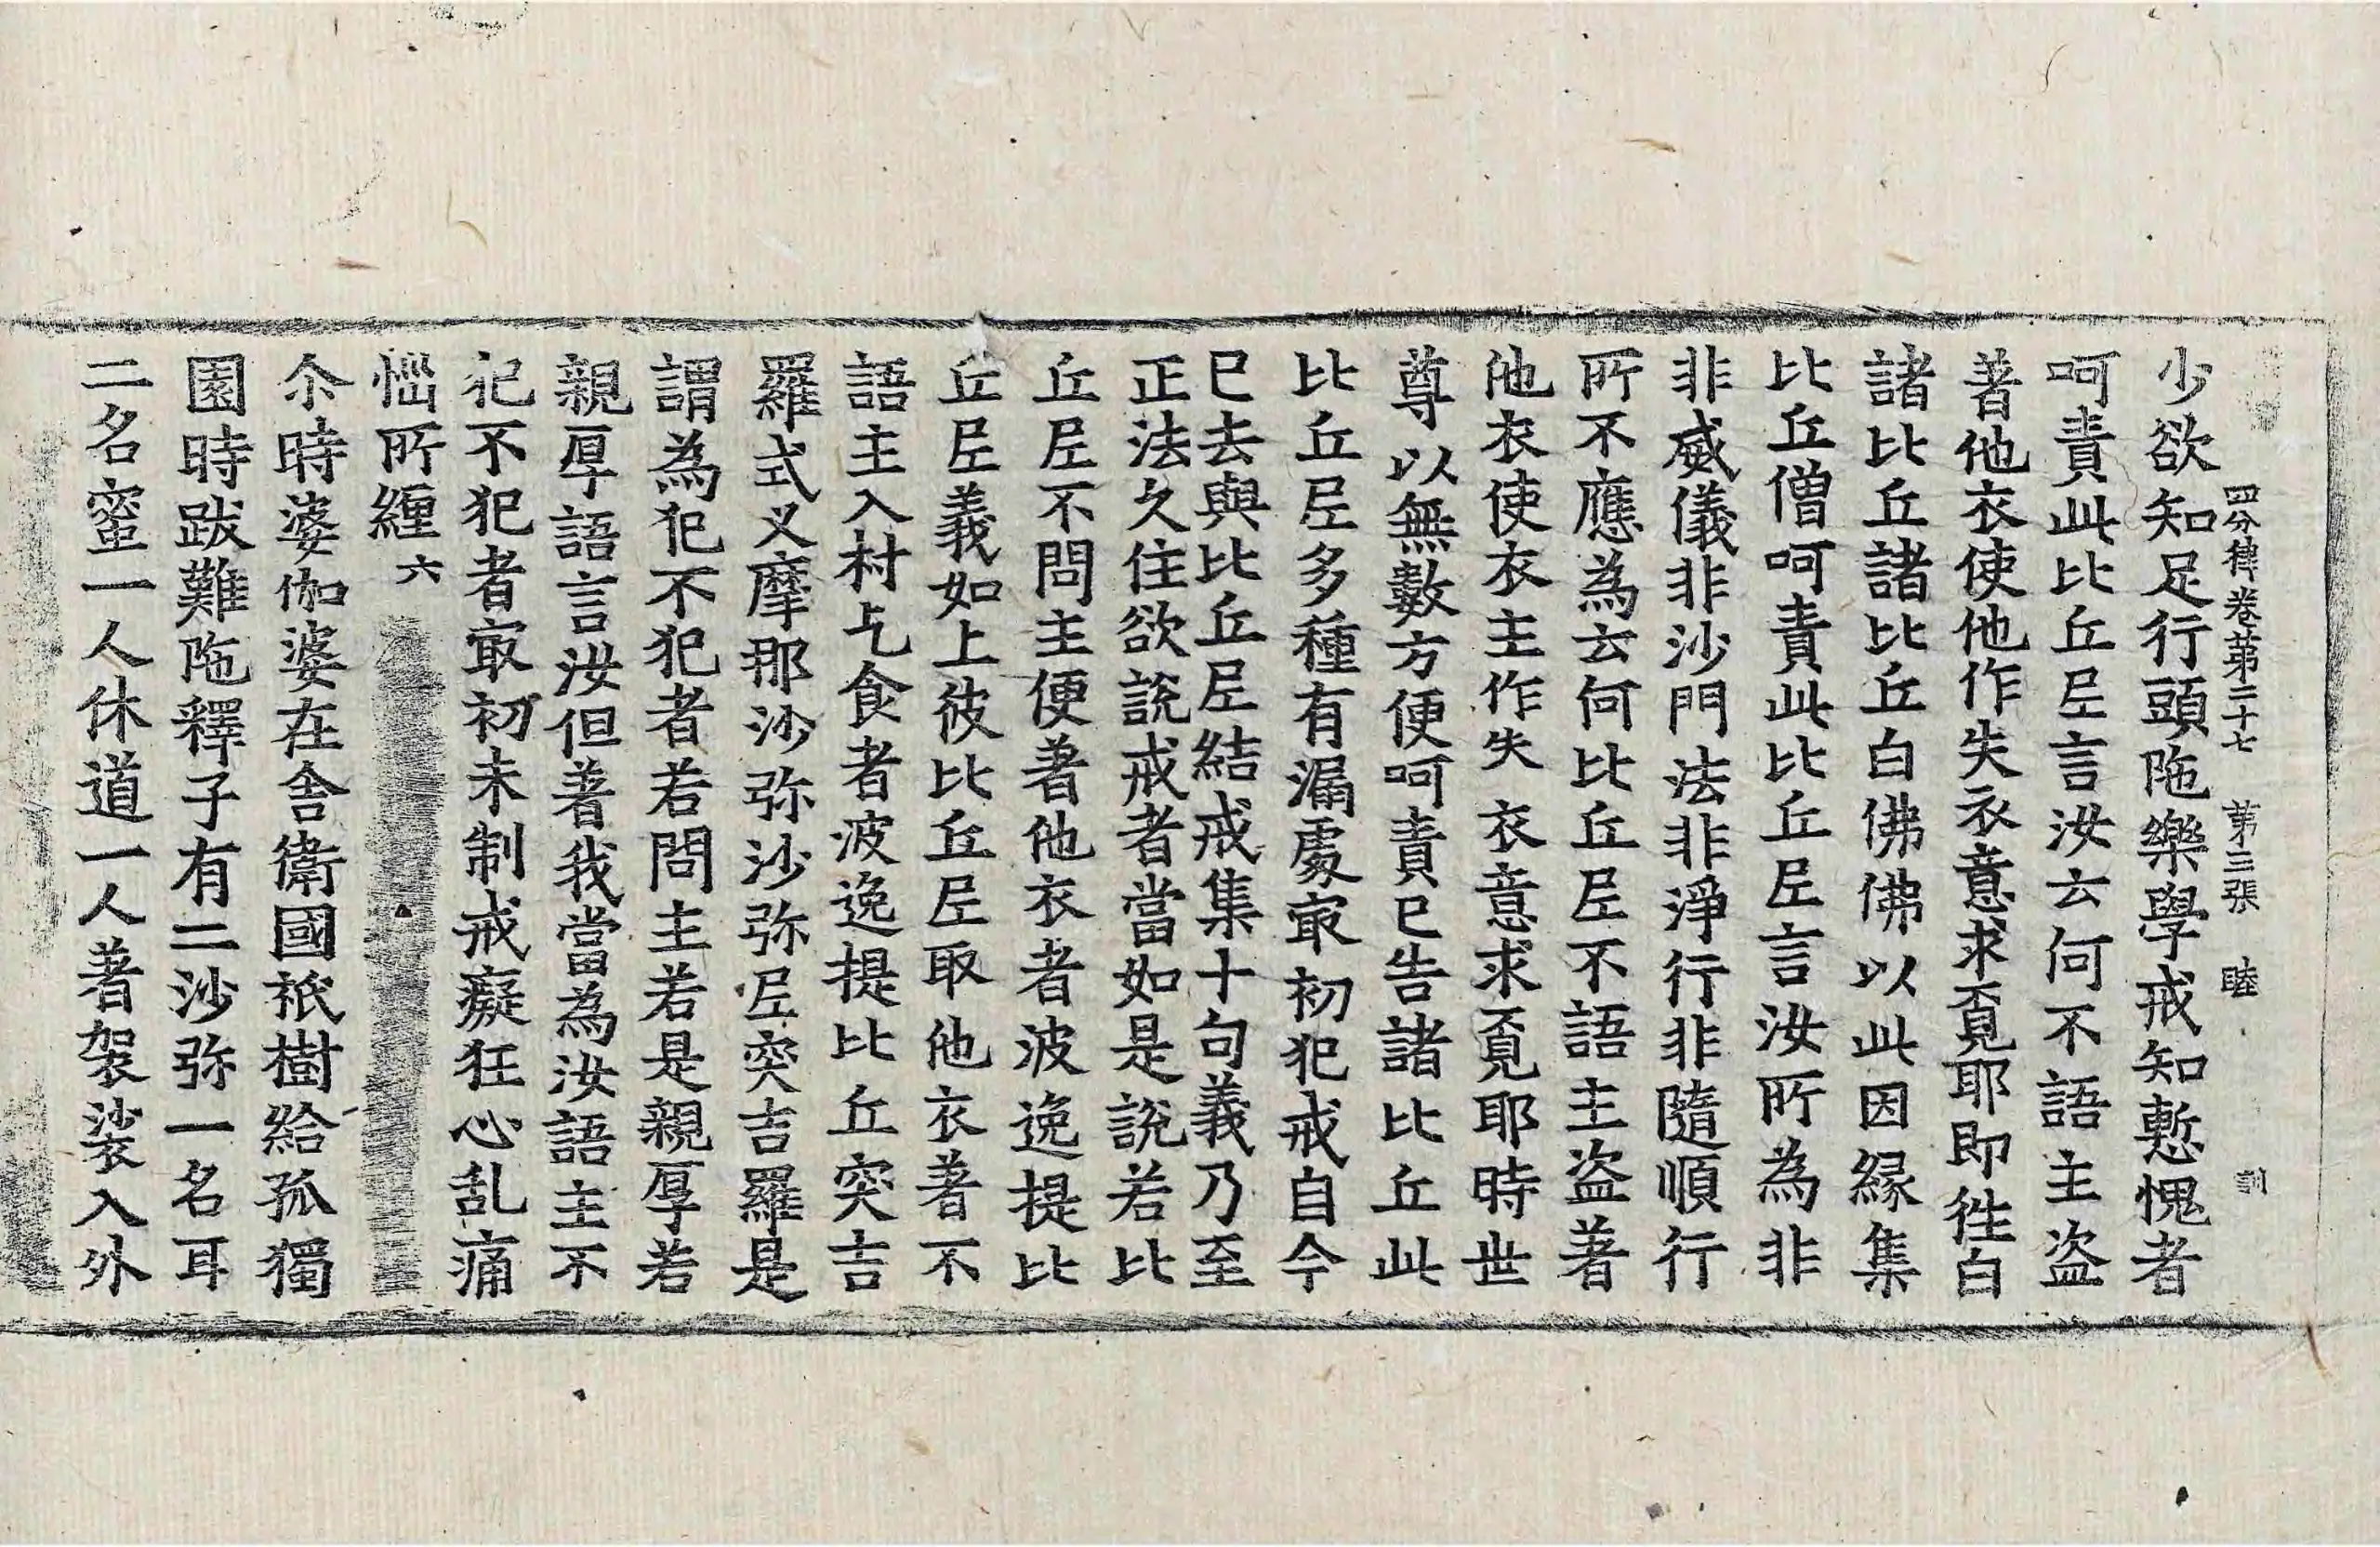 四分律卷苐二十七　苐三張　睦
少欲知足行頭陁樂學戒知慙愧者
呵責此比丘尼言汝云何不語主盗
著他衣使他作失衣意求覓耶即徃白
諸比丘諸比丘白佛佛以此因緣集
比丘僧呵責此比丘尼言汝所為非
非威儀非沙門法非淨行非隨順行
所不應為云何比丘尼不語主盗著
他衣使衣主作失衣意求覓耶時世
尊以無數方便呵責已告諸比丘此
比丘尼多種有漏處㝡初犯戒自今
已去與比丘尼結戒集十句義乃至
正法久住欲說戒者當如是說若比
丘尼不問主便著他衣者波逸提比
丘尼義如上彼比丘尼取他衣著不
語主入村乞食者波逸提比丘突吉
羅式叉摩那沙弥沙弥尼突吉羅是
謂為犯不犯者若問主若是親厚若
親厚語言汝但著我當為汝語主不
犯不犯者㝡初未制戒癡狂心乱痛
惱所纏六
尒時婆伽婆在舍衛國祇樹給孤獨
園時跋難陁釋子有二沙弥一名耳
二名蜜一人休道一人著袈裟入外